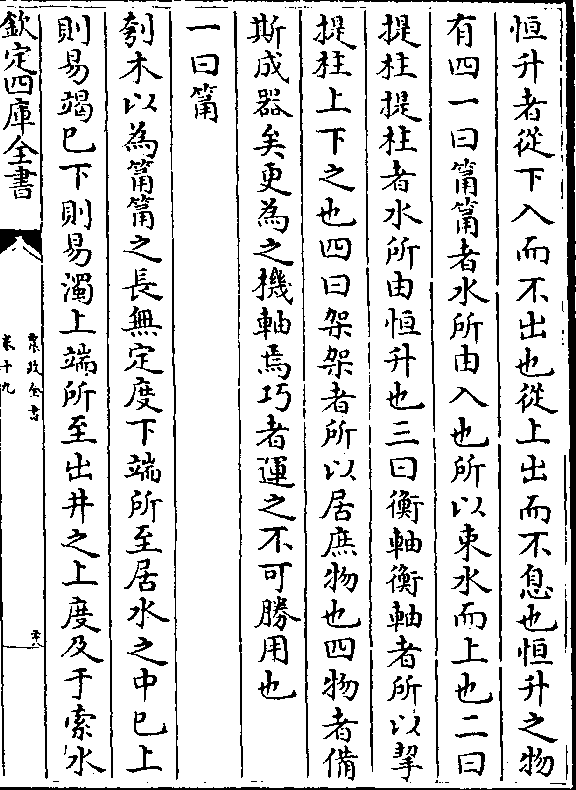 恒升者從下入而不出也從上出而不息也恒升之物
有四一曰筩筩者水所由入也所以束水而上也二曰
提柱提柱者水所由恒升也三曰衡軸衡軸者所以挈
提柱上下之也四曰架架者所以居庶物也四物者備
斯成器矣更為之機軸焉巧者運之不可勝用也
一曰筩
刳木以為筩筩之長無定度下端所至居水之中已上
則易竭已下則易濁上端所至出井之上度及于索水
欽定四庫全書
農政全書
卷十九